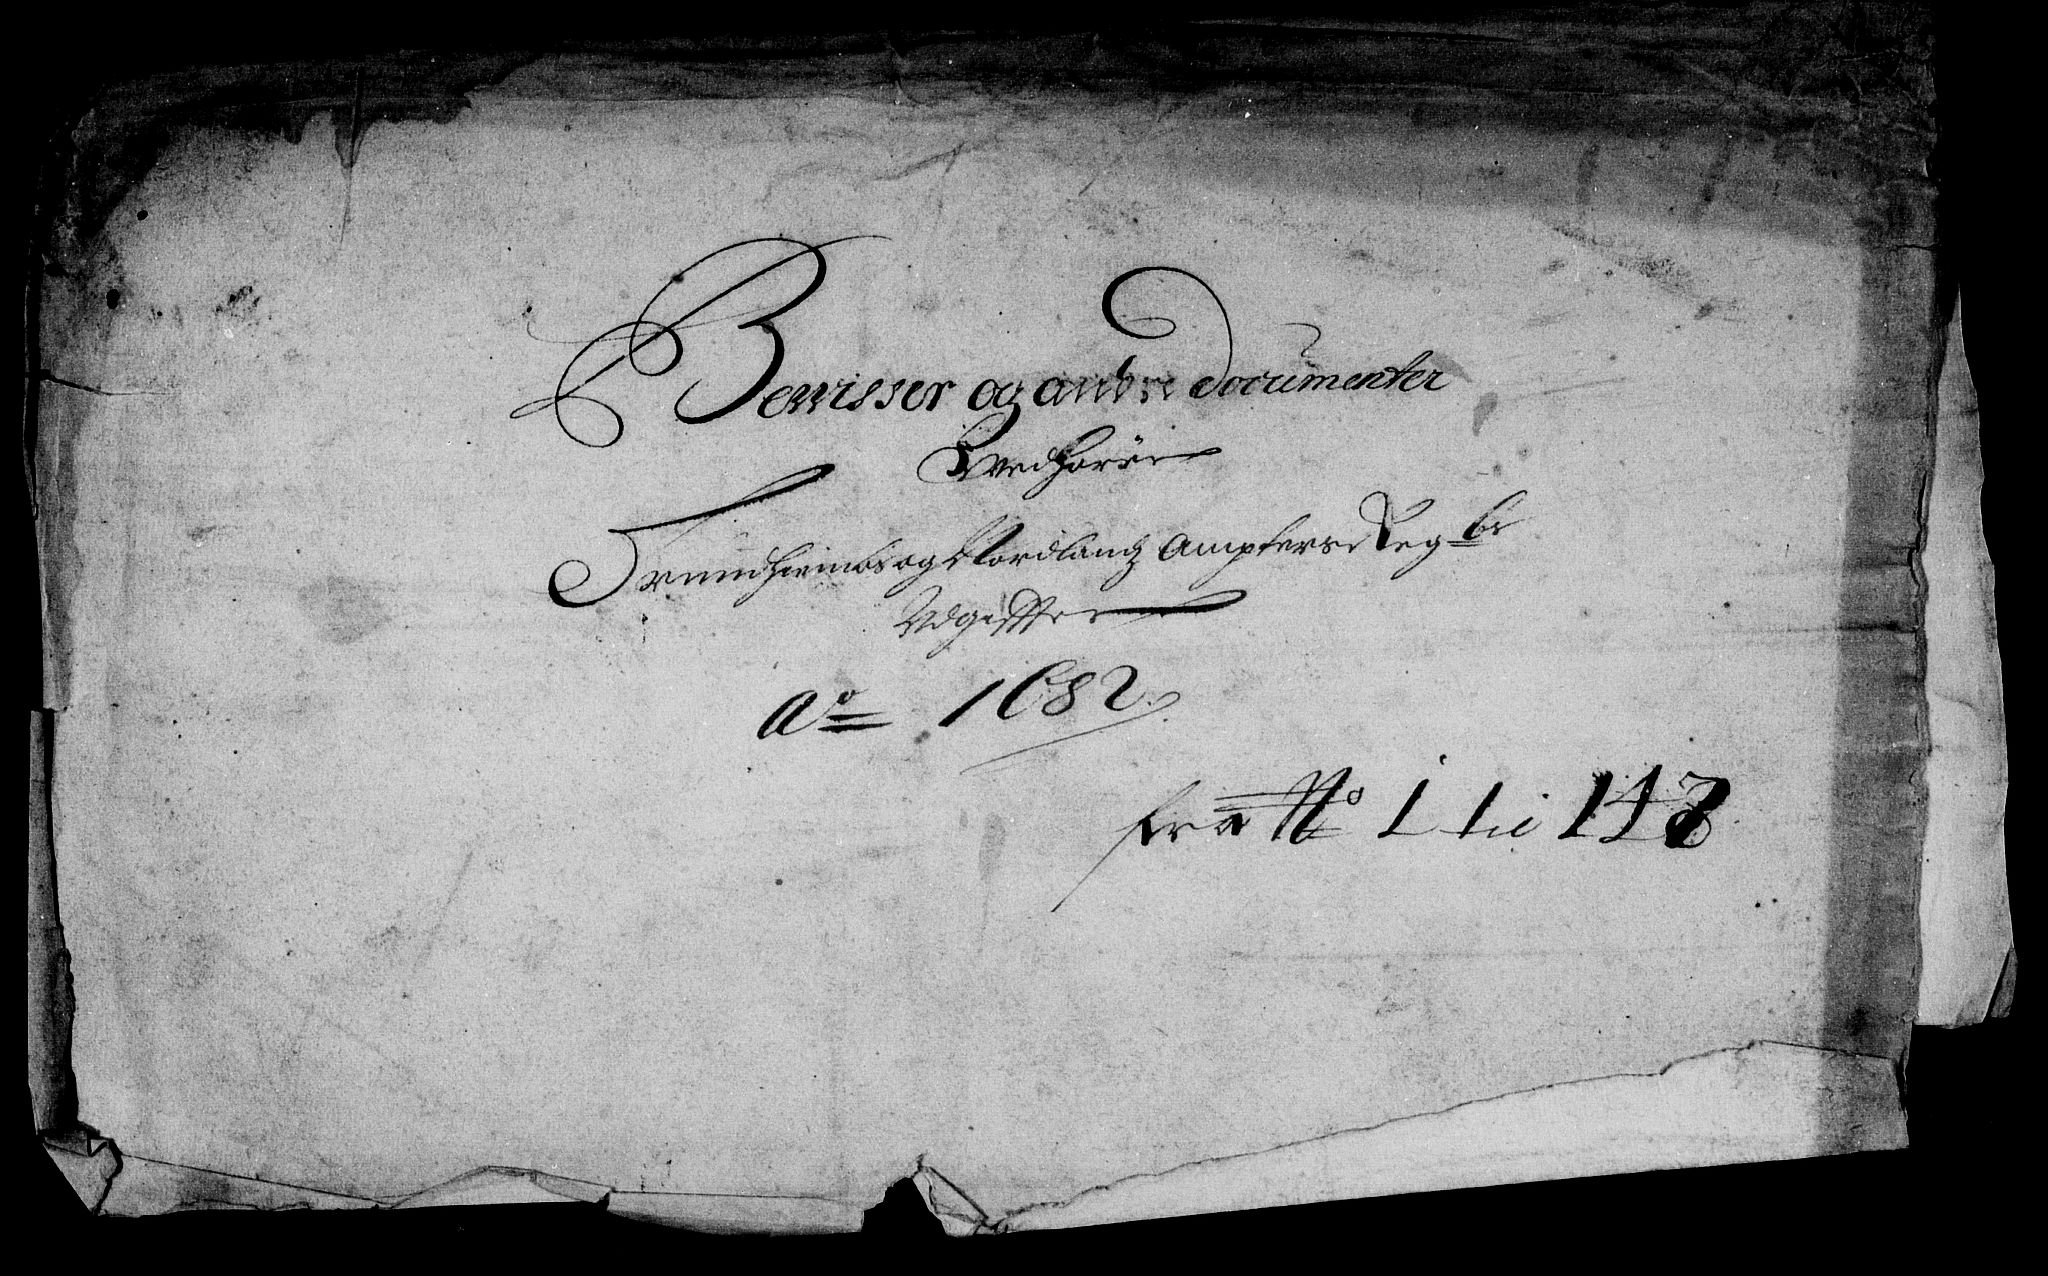 Bewisser og andre documenter
Vedhörer
Trundhiembs og Nordlandz Ampters Regnskabs
Udgiffter
Ao 1682.
fra No 1 til 148